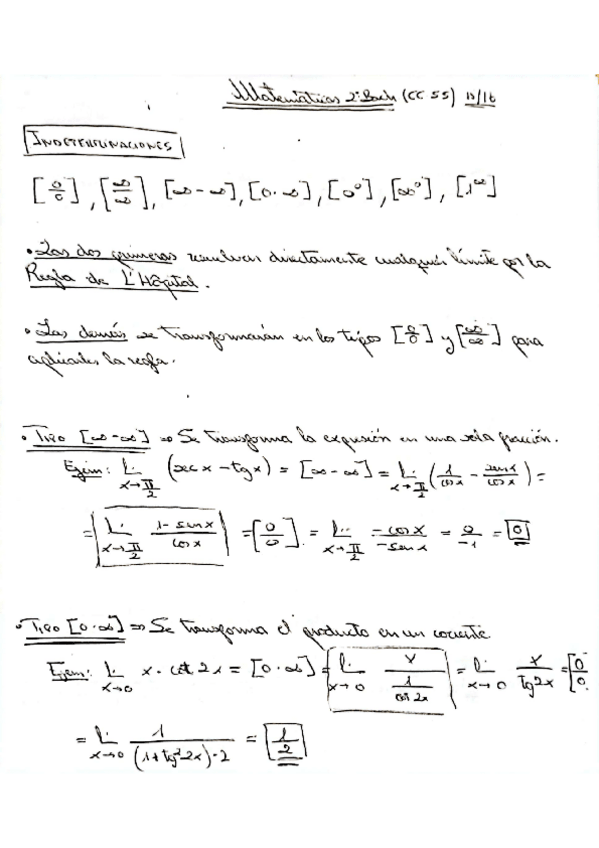 Matemáticas 2ºBach (CC SS) 15/16
INDETERMINACIONES
[0/0], [∞/∞], [∞-∞], [0·∞], [0⁰], [∞⁰], [1^∞]
• Las dos primeras resuelven directamente cualquier límite por la
Regla de L'Hôpital.
• Las demás se transformarán en los tipos [0/0] y [∞/∞] para
aplicarles la regla.
• TIPO [∞-∞] ⇒ Se transforma la expresión en una sola fracción.
Ejem: L. x→π/2 (sec x - tg x) = [∞-∞] = L. x→π/2 (1/cos x - sen x/cos x) =
= L. x→π/2 (1 - sen x)/cos x = [0/0] = L. x→π/2 -cos x/-sen x = 0/-1 = 0
• TIPO [0·∞] ⇒ Se transforma el producto en un cociente
Ejem: L. x→0 x·cot 2x = [0·∞] = L. x→0 x/(1/cot 2x) = L. x→0 x/tg 2x = [0/0]
= L. x→0 1/((1+tg² 2x)·2) = 1/2